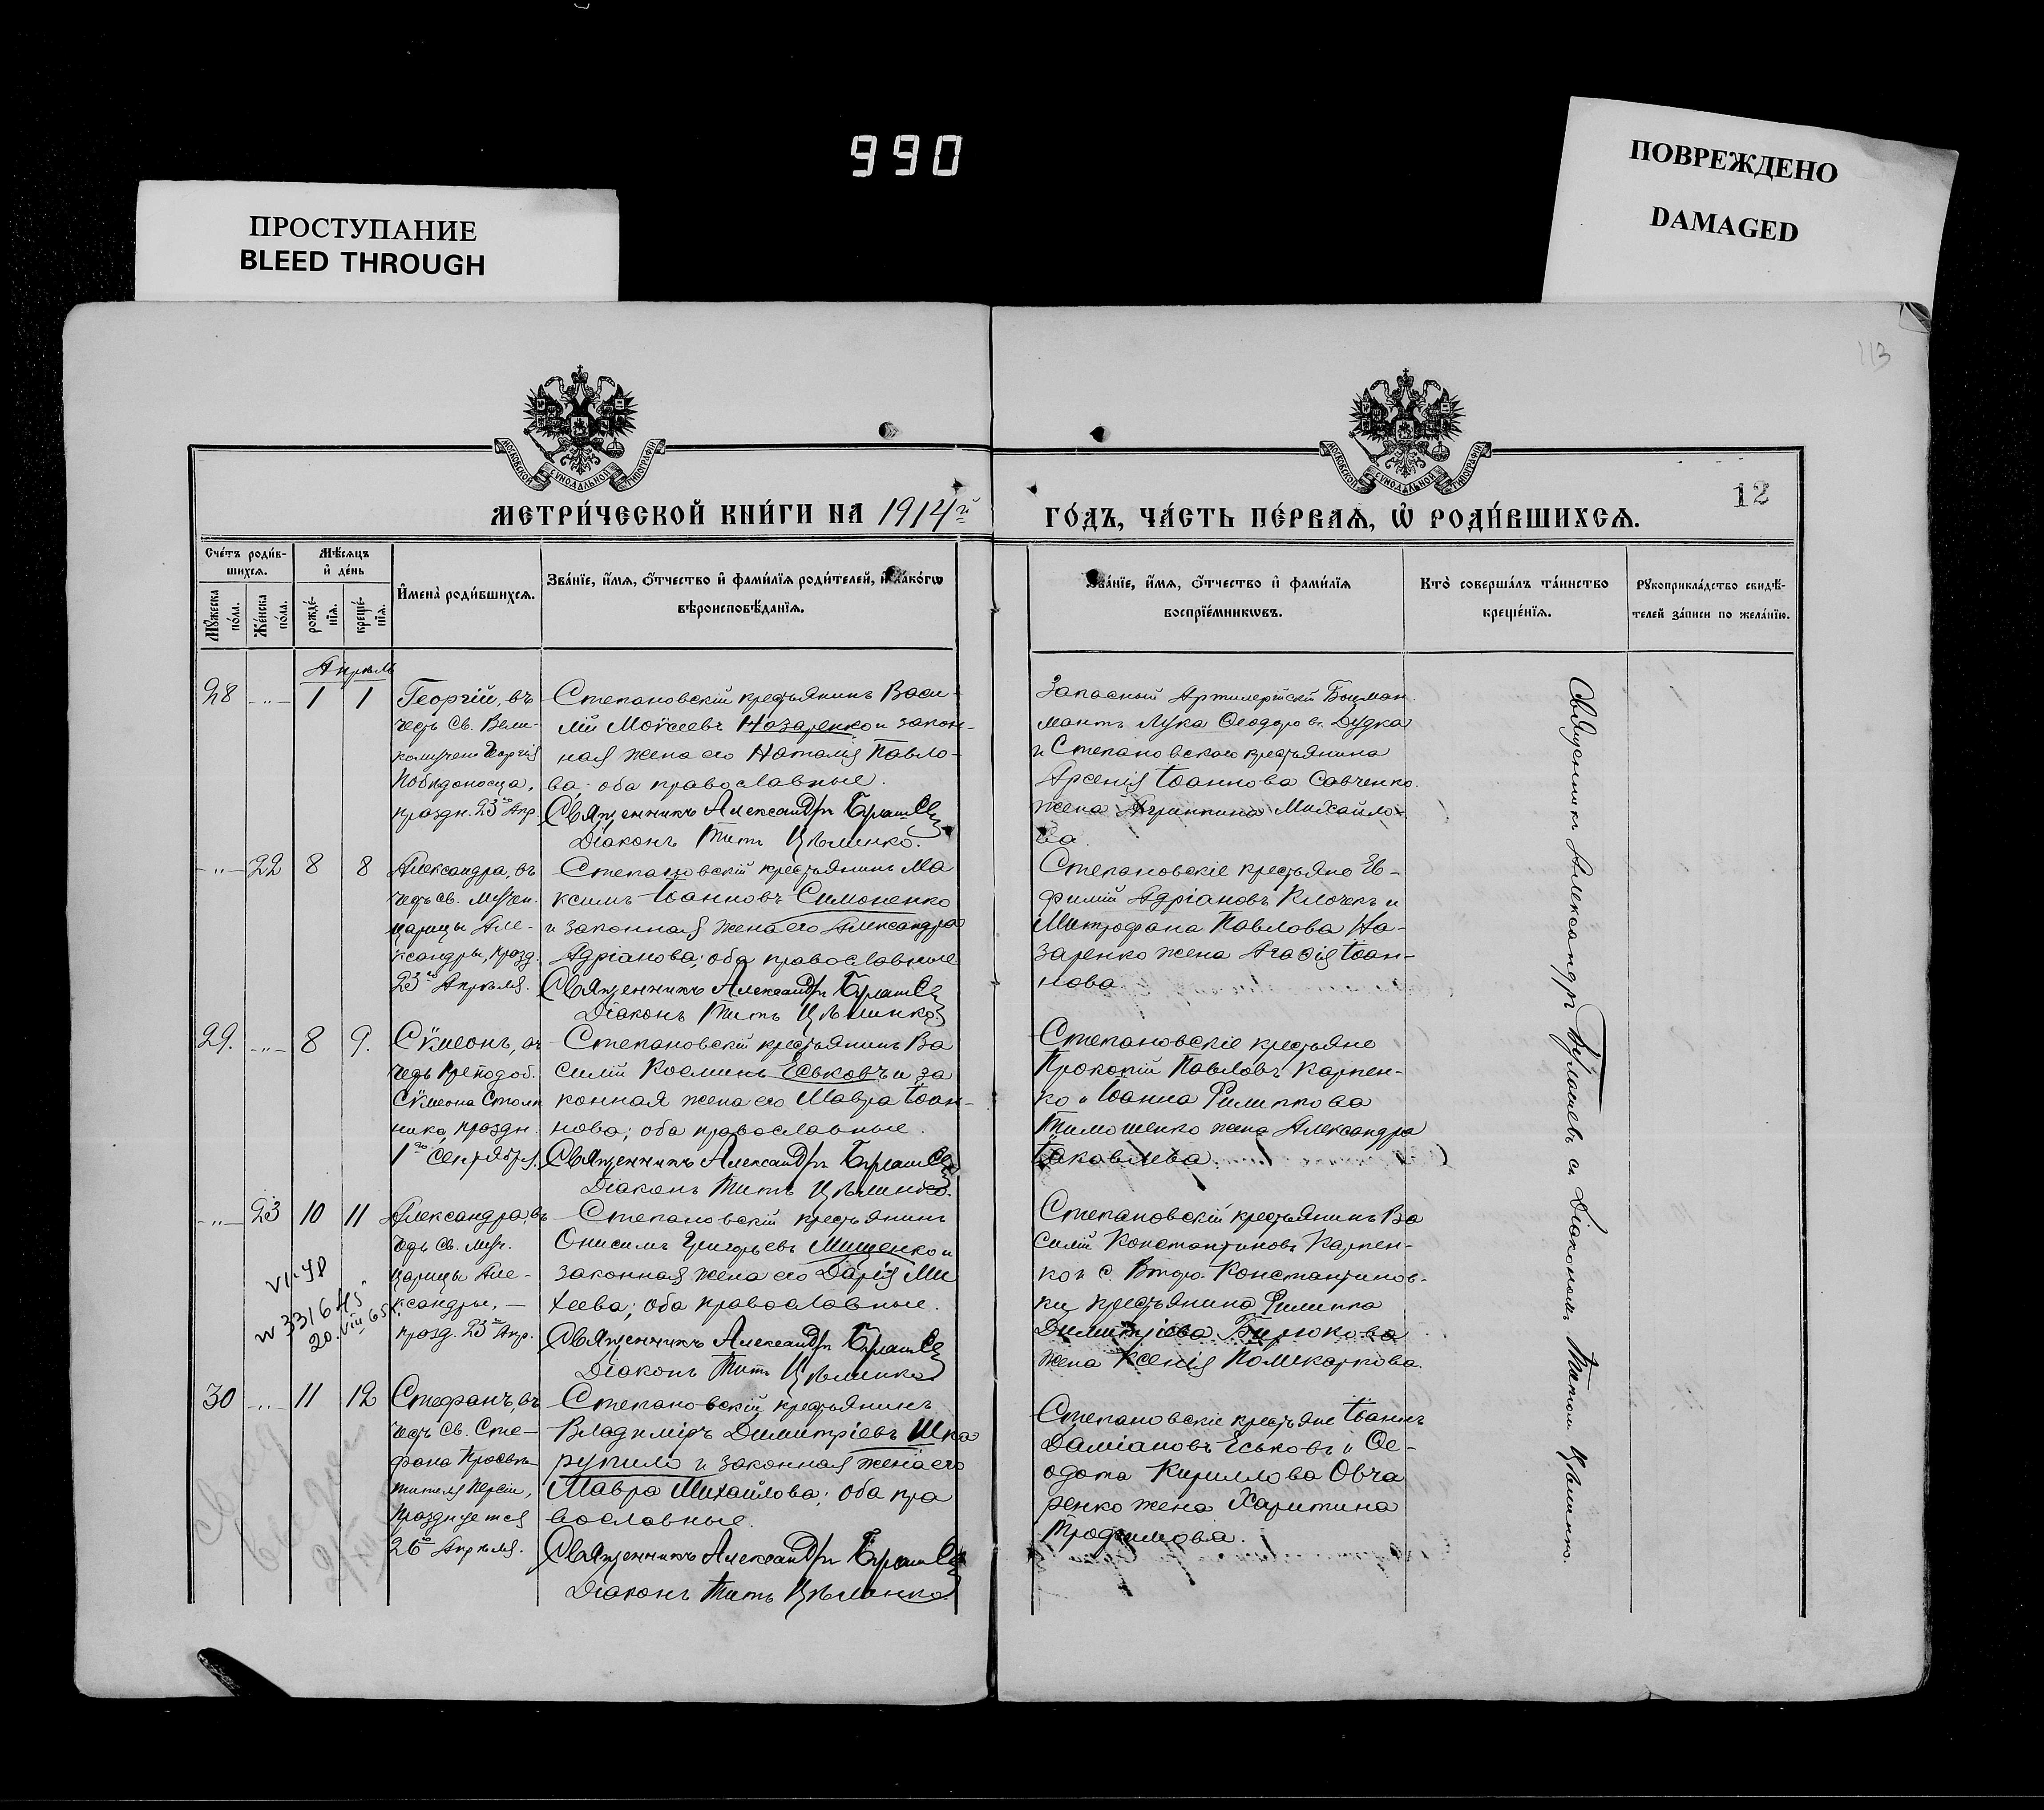 990
ПРОСТУПАНИЕ
BLEED THROUGH
ПОВРЕЖДЕНО
DAMAGED
113
МОСКОВСКОЙ СѴНОДАЛЬНОЙ ТИПОГРАФІИ
МОСКОВСКОЙ СѴНОДАЛЬНОЙ ТИПОГРАФІИ
12
МЕТРИ́ЧЕСКОЙ КНИ́ГИ НА 1914й
ГО́ДЪ, ЧА́СТЬ ПЕ́РВАѦ, Ѡ҆ РОДИ́ВШИХСѦ.
Сче́тъ роди́в-
шихсѧ.
Мꙋжеска по́ла.
Же́нска по́ла.
Мѣ́сѧцъ
и҆ де́нь
рожде́-
нїѧ.
креще́-
нїѧ.
И҆мена̀ роди́вшихсѧ.
Зва́нїе, и҆́мѧ, ѻ҆́тчество и҆ фами́лїѧ роди́телей, и҆ како́гѡ
вѣроисповѣ́данїѧ.
Зва́нїе, и҆́мѧ, ѻ҆́тчество и҆ фами́лїѧ
воспрїе́мникѡвъ.
Кто̀ соверша́лъ та́инство
креще́нїѧ.
Рꙋкоприкла́дство свидѣ́-
телей за́писи по жела́нїю.
Апрѣль
28 -"- 1 1
Георгій, въ
честь Св. Вели-
комучен Георгія
Побѣдоносца,
праздн. 23го Апр.
Степановскій крестьянинъ Васи-
лій Моѵсеевъ Назаренко и закон-
ная жена его Наталія Павло-
ва; оба православные.
Священникъ Александръ
Діаконъ Титъ Цѣлинко.
Запасный Артилерійскій
Лука Ѳеодоровъ Дудка
и Степановского крестьянина
Арсенія Іоаннова Савченко
жена Агриппина Михайло-
ва.
-"- 22 8 8
Александра, въ
честь св. Мучен.
царицы Але-
ксандры, празд.
23го Апрѣля.
Степановскій крестьянинъ Ма
ксимъ Іоанновъ Симоненко
и законная жена его Александра
Адріанова; оба православные
Священникъ Александръ
Діаконъ Титъ Цѣлинко
Степановскіе крестьяне Ев-
фимій Адріановъ Клочекъ и
Митрофана Павлова На-
заренко жена Агаѳія Іоан-
нова
29. -"- 8 9.
Сѵмеонъ, въ
честь Преподоб.
Сѵмеона Столп
ника, праздн.
1го Сентября.
Степановскій крестьянинъ Ва
силій Косминъ Еськовъ и за
конная жена его Мавра Іоан-
нова; оба православные.
Священникъ Александръ
Діаконъ Титъ Цѣлинко.
Степановскіе крестьяне
Прокопій Павловъ Карпен-
ко и Іоанна Филиппова
Тимошенко жена Александра
Іаковлева.
-"- 23 10 11
Александра, въ
честь Св. Муч.
Царицы Але-
ксандры, -
празд. 23го Апр.
Степановскій крестьянинъ
Онисимъ Григорьевъ Мищенко и
законная жена его Дарія Ми
хеева; оба православные.
Священникъ Александръ
Діаконъ Титъ Цѣлинко
Степановскій крестьянинъ Ва
силій Константиновъ Карпен-
ко и с. Константинов-
ки крестьянина Филиппа
Димитріева Бирюкова
жена Ксенія Поликарпова.
20.VIII 65
30 -"- 11 12
Стефанъ, въ
честь Св. Сте-
фана Просвѣ-
тителя Персіи,
празднуется
26го Апрѣля.
Степановскій крестьянинъ
Владиміръ Димитріевъ Шка
рупило и законная жена его
Мавра Михайлова; оба пра
вославные.
Священникъ Александръ
Діаконъ Титъ Цѣлинко
Степановскіе крестьяне Іоаннъ
Даміановъ Еськовъ и Ѳе-
одота Кириллова Овча
ренко жена Харитина
Трофимова.
Священникъ Александръ съ Діакономъ Титомъ Цѣлинко.